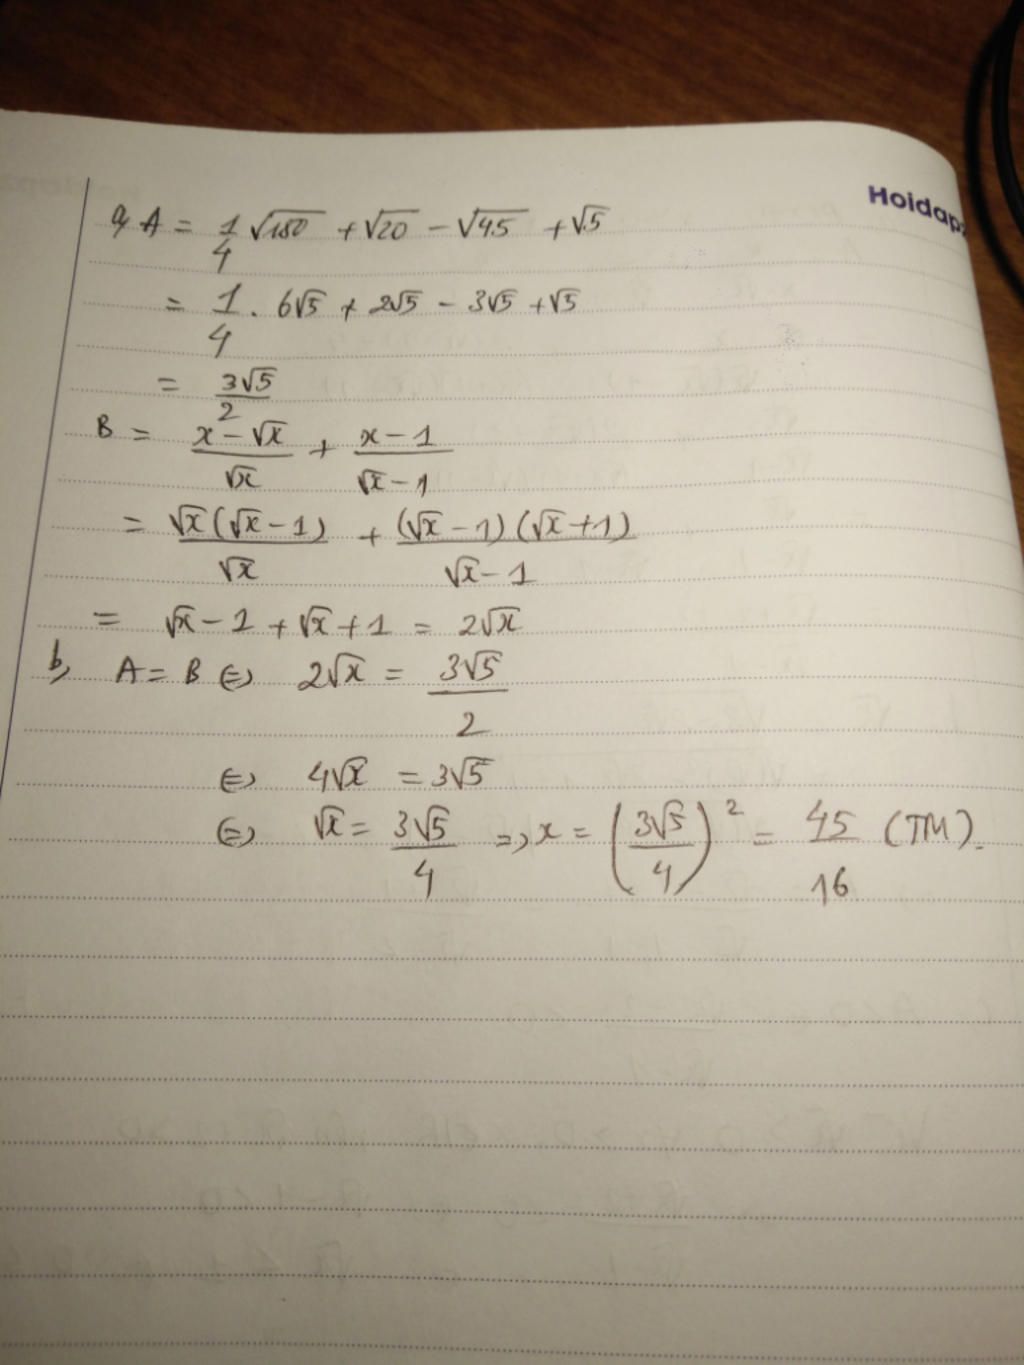 Hoidap
a, A = 1/4 √180 + √20 − √45 + √5
= 1/4 . 6√5 + 2√5 − 3√5 + √5
= 3√5/2
B = (x − √x)/√x + (x − 1)/(√x − 1)
= √x(√x − 1)/√x + (√x − 1)(√x + 1)/(√x − 1)
= √x − 1 + √x + 1 = 2√x
b, A = B ⇔ 2√x = 3√5/2
⇔ 4√x = 3√5
⇔ √x = 3√5/4 => x = (3√5/4)² = 45/16 (TM).